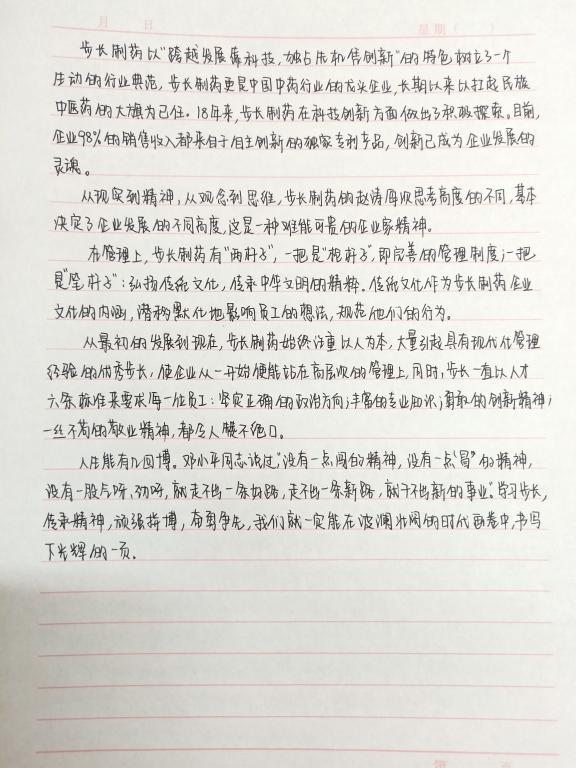 月 日 星期（ ）
步长制药以“跨越发展靠科技，独占先机售创新”的特色，树立了一个
生动的行业典范，步长制药更是中国中药行业的龙头企业，长期以来以扛起民族
中医药的大旗为己任。18年来，步长制药在科技创新方面做出了积极探索。目前，
企业98%的销售收入都来自于自主创新的独家专利产品，创新已成为企业发展的
灵魂。
从现实到精神，从观念到思维，步长制药的赵涛每次思考高度的不同，基本
决定了企业发展的不同高度，这是一种难能可贵的企业家精神。
在管理上，步长制药有“两杆子”，一把是“枪杆子”，即完善的管理制度；一把
是“笔杆子”：弘扬传统文化，传承中华文明的精粹。传统文化作为步长制药企业
文化的内涵，潜移默化地影响员工的想法，规范他们的行为。
从最初的发展到现在，步长制药始终注重以人为本，大量引起具有现代化管理
经验的优秀步长，使企业从一开始便能站在高层次的管理上，同时，步长一直以人才
六条标准来要求每一位员工：坚实正确的政治方向；丰富的专业知识；勇敢的创新精神；
一丝不苟的敬业精神，都令人赞不绝口。
人生能有几回搏。邓小平同志说过，“没有一点闯的精神，没有一点“冒”的精神，
没有一股气呀、劲呀，就走不出一条好路，走不出一条新路，就干不出新的事业”。学习步长，
传承精神，顽强拼搏，奋勇争先，我们就一定能在波澜壮阔的时代画卷中，书写
下光辉的一页。
第 页